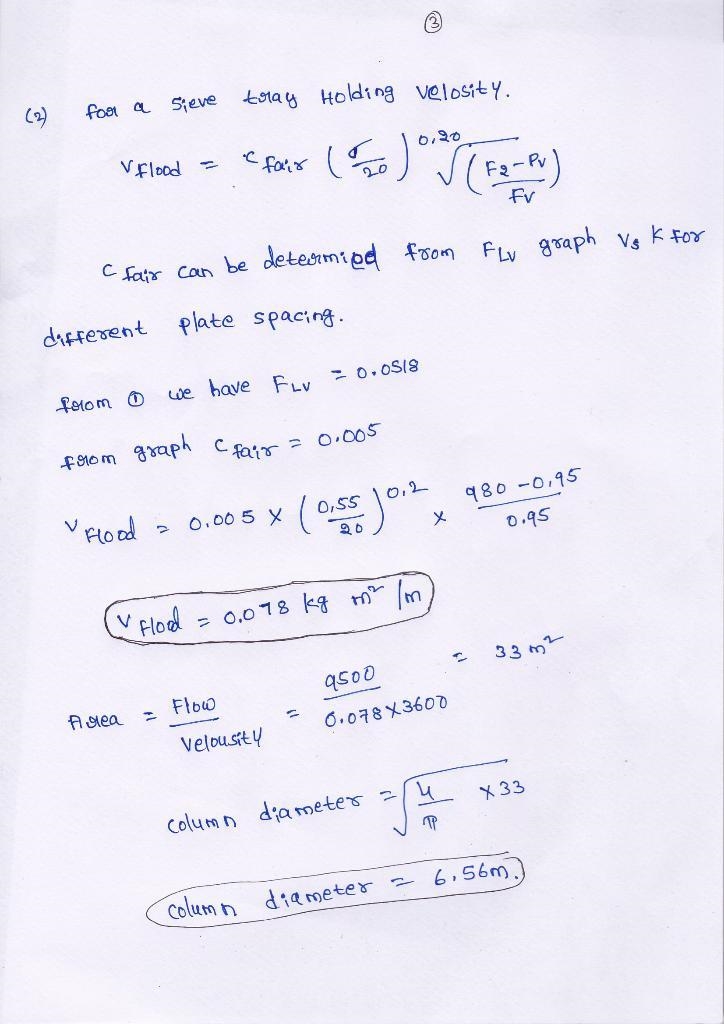 ③
(2) for a Sieve tray Holding velosity.
V Flood = C fair (σ/20)^0,20 √((F2-Pv)/Fv)
C fair can be determied from FLV graph Vs K for
different plate spacing.
from ① we have FLV = 0.0518
from graph C fair = 0.005
V Flood = 0.005 X (0,55/20)^0,2 X (980-0,95)/0.95
V Flod = 0.078 kg m² /m
Area = Flow/Velousity = 9500/(0.078X3600) = 33 m²
column diameter = √(4/π X 33)
column diameter = 6,56m.